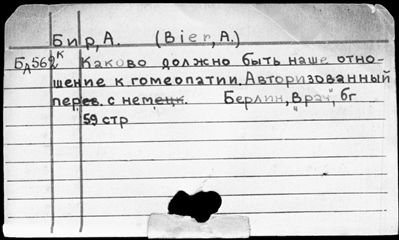 Бир, А. (Bier, A.)
БД562к Каково должно быть наше отно-
шение к гомеопатии. Авторизованный
перев. с немецк. Берлин, "Врач", бг
59 стр